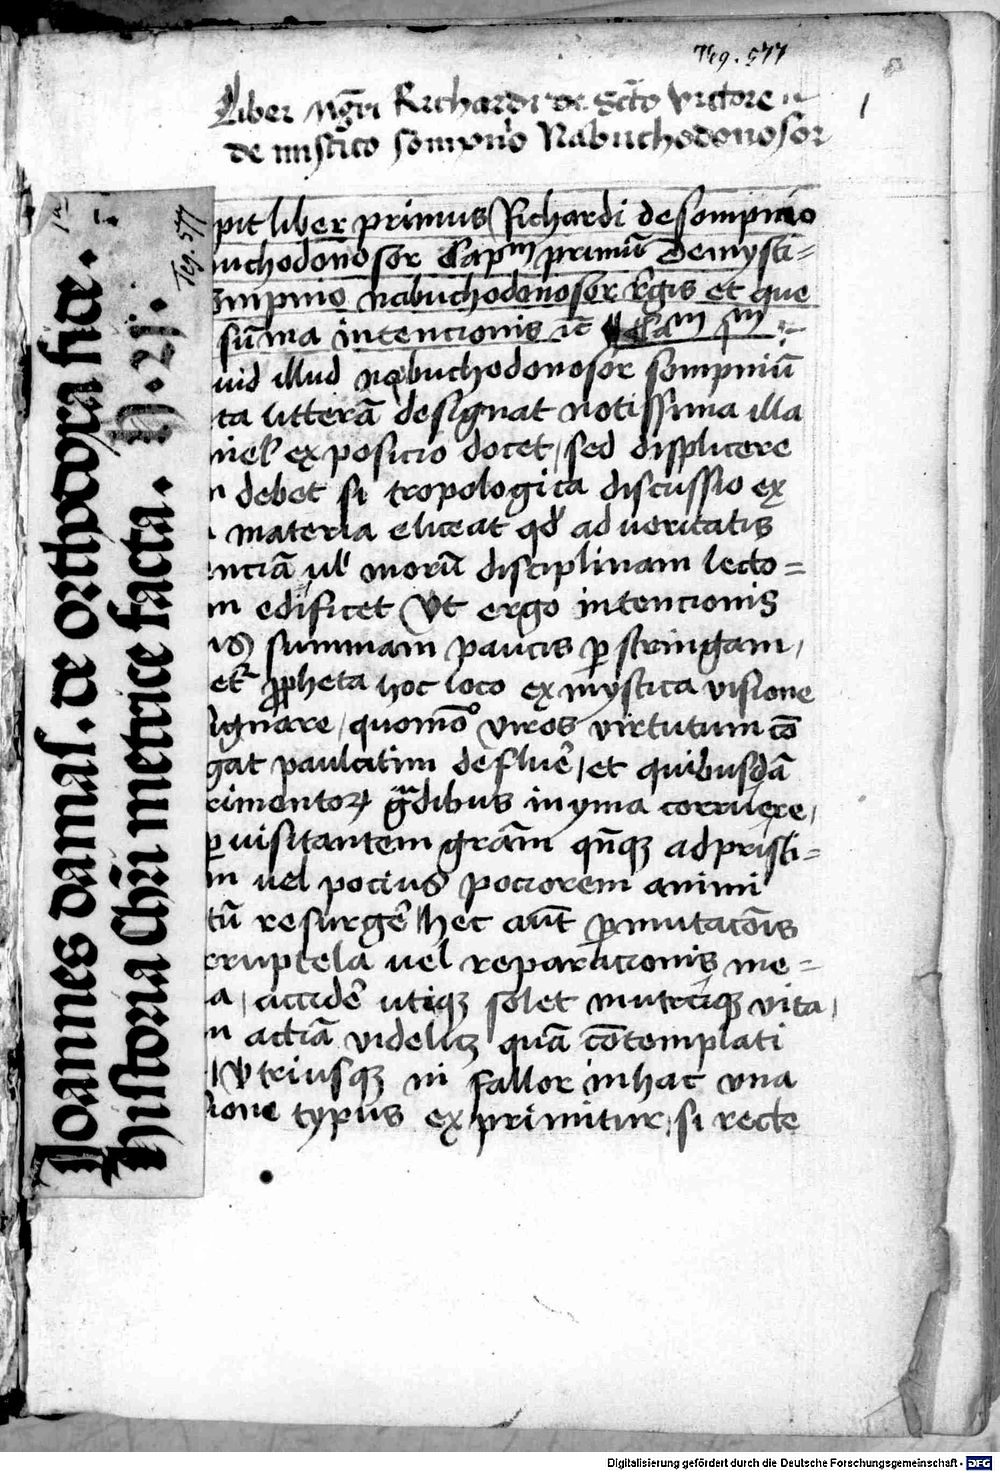 Teg. 577
1
Liber mgri Richardi de scto victore
de mistico sompnio Nabuchodonosor
pit liber primus Richardi de sompnio
uchodonosor Capm primũ De mysti=
ompnio nabuchodonosor regis et que
sũma intencionis
uid illud nabuchodonosor sompniũ
ta litterã designat notissima illa
niel exposicio docet, sed displicere
n debet si tropologica discussio ex
materia eliceat qd ad veritatis
enciã ul morũ disciplinam lecto=
m edificet Ut ergo intencionis
summam paucis p stringam,
propheta hoc loco ex mystica visione
ignare, quomo viros virtutum cõ
gat paulatim defluer, et quibusdã
rimentorum gradibus in yma corruere,
p visitantem grãm qnque ad pristi=
m vel pocius pociorem animi
tũ resurger hec aut pmutacõis
rruptela vel reparacionis me=
a, accider utique solet utriique vita,
n actiã videlicet quã contemplati
Utriusque ni fallor in hac una
ione typus exprimitur, si recte
Joannes damas. de orthodoxa fide.
historia Chri metrice facta.
Teg. 577
Digitalisierung gefördert durch die Deutsche Forschungsgemeinschaft - DFG